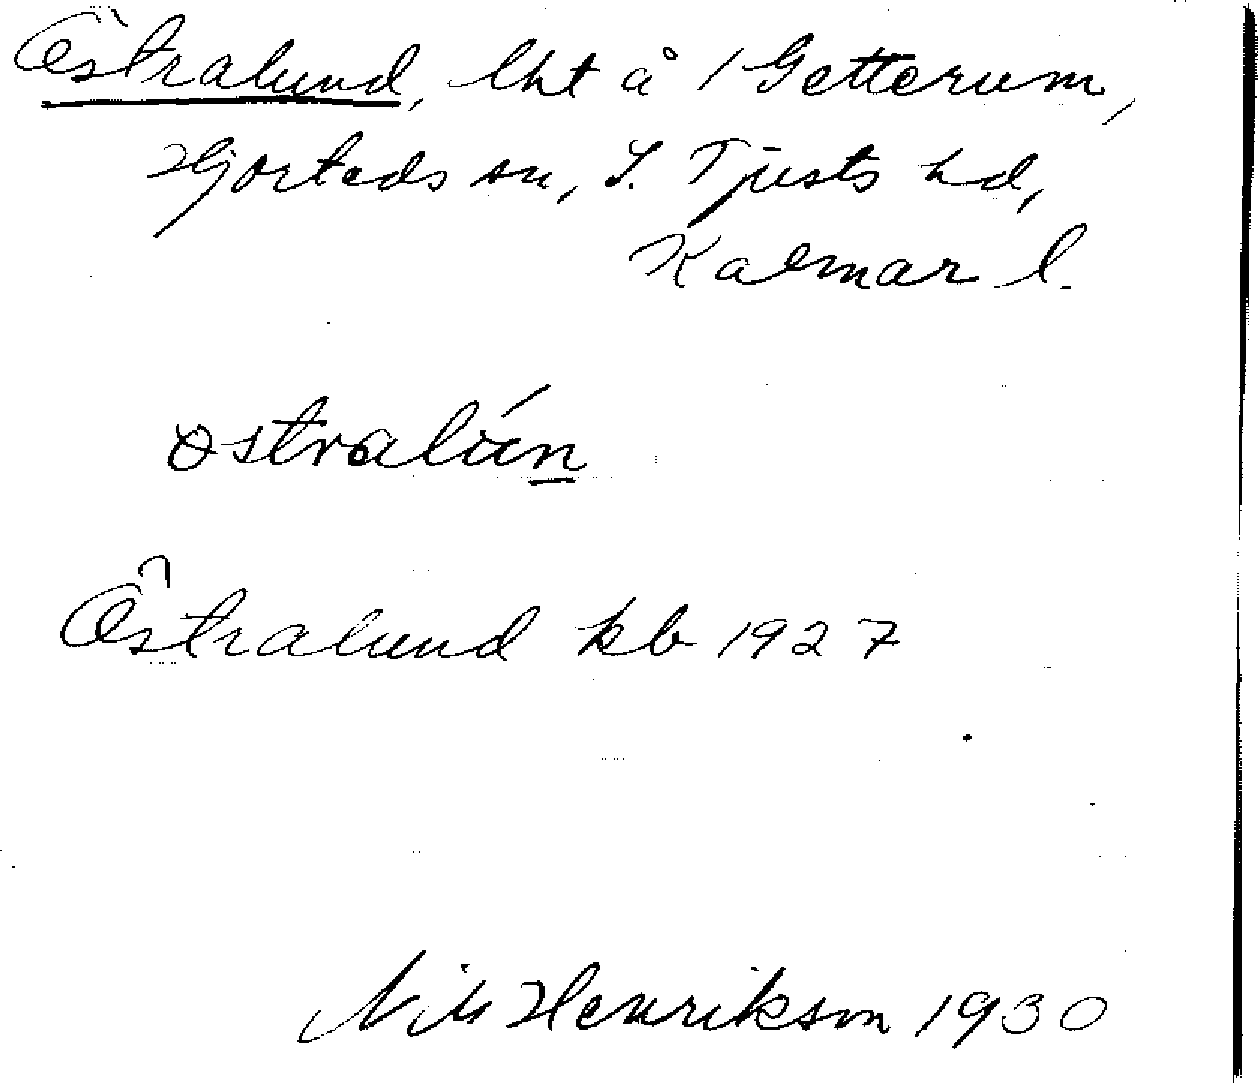 Östralund, lht å 1 Getterum,
Hjorteds sn, S. Tjusts hd,
Kalmar l.
ɵstralún
Östralund kb 1927
Nils Henrikson 1930